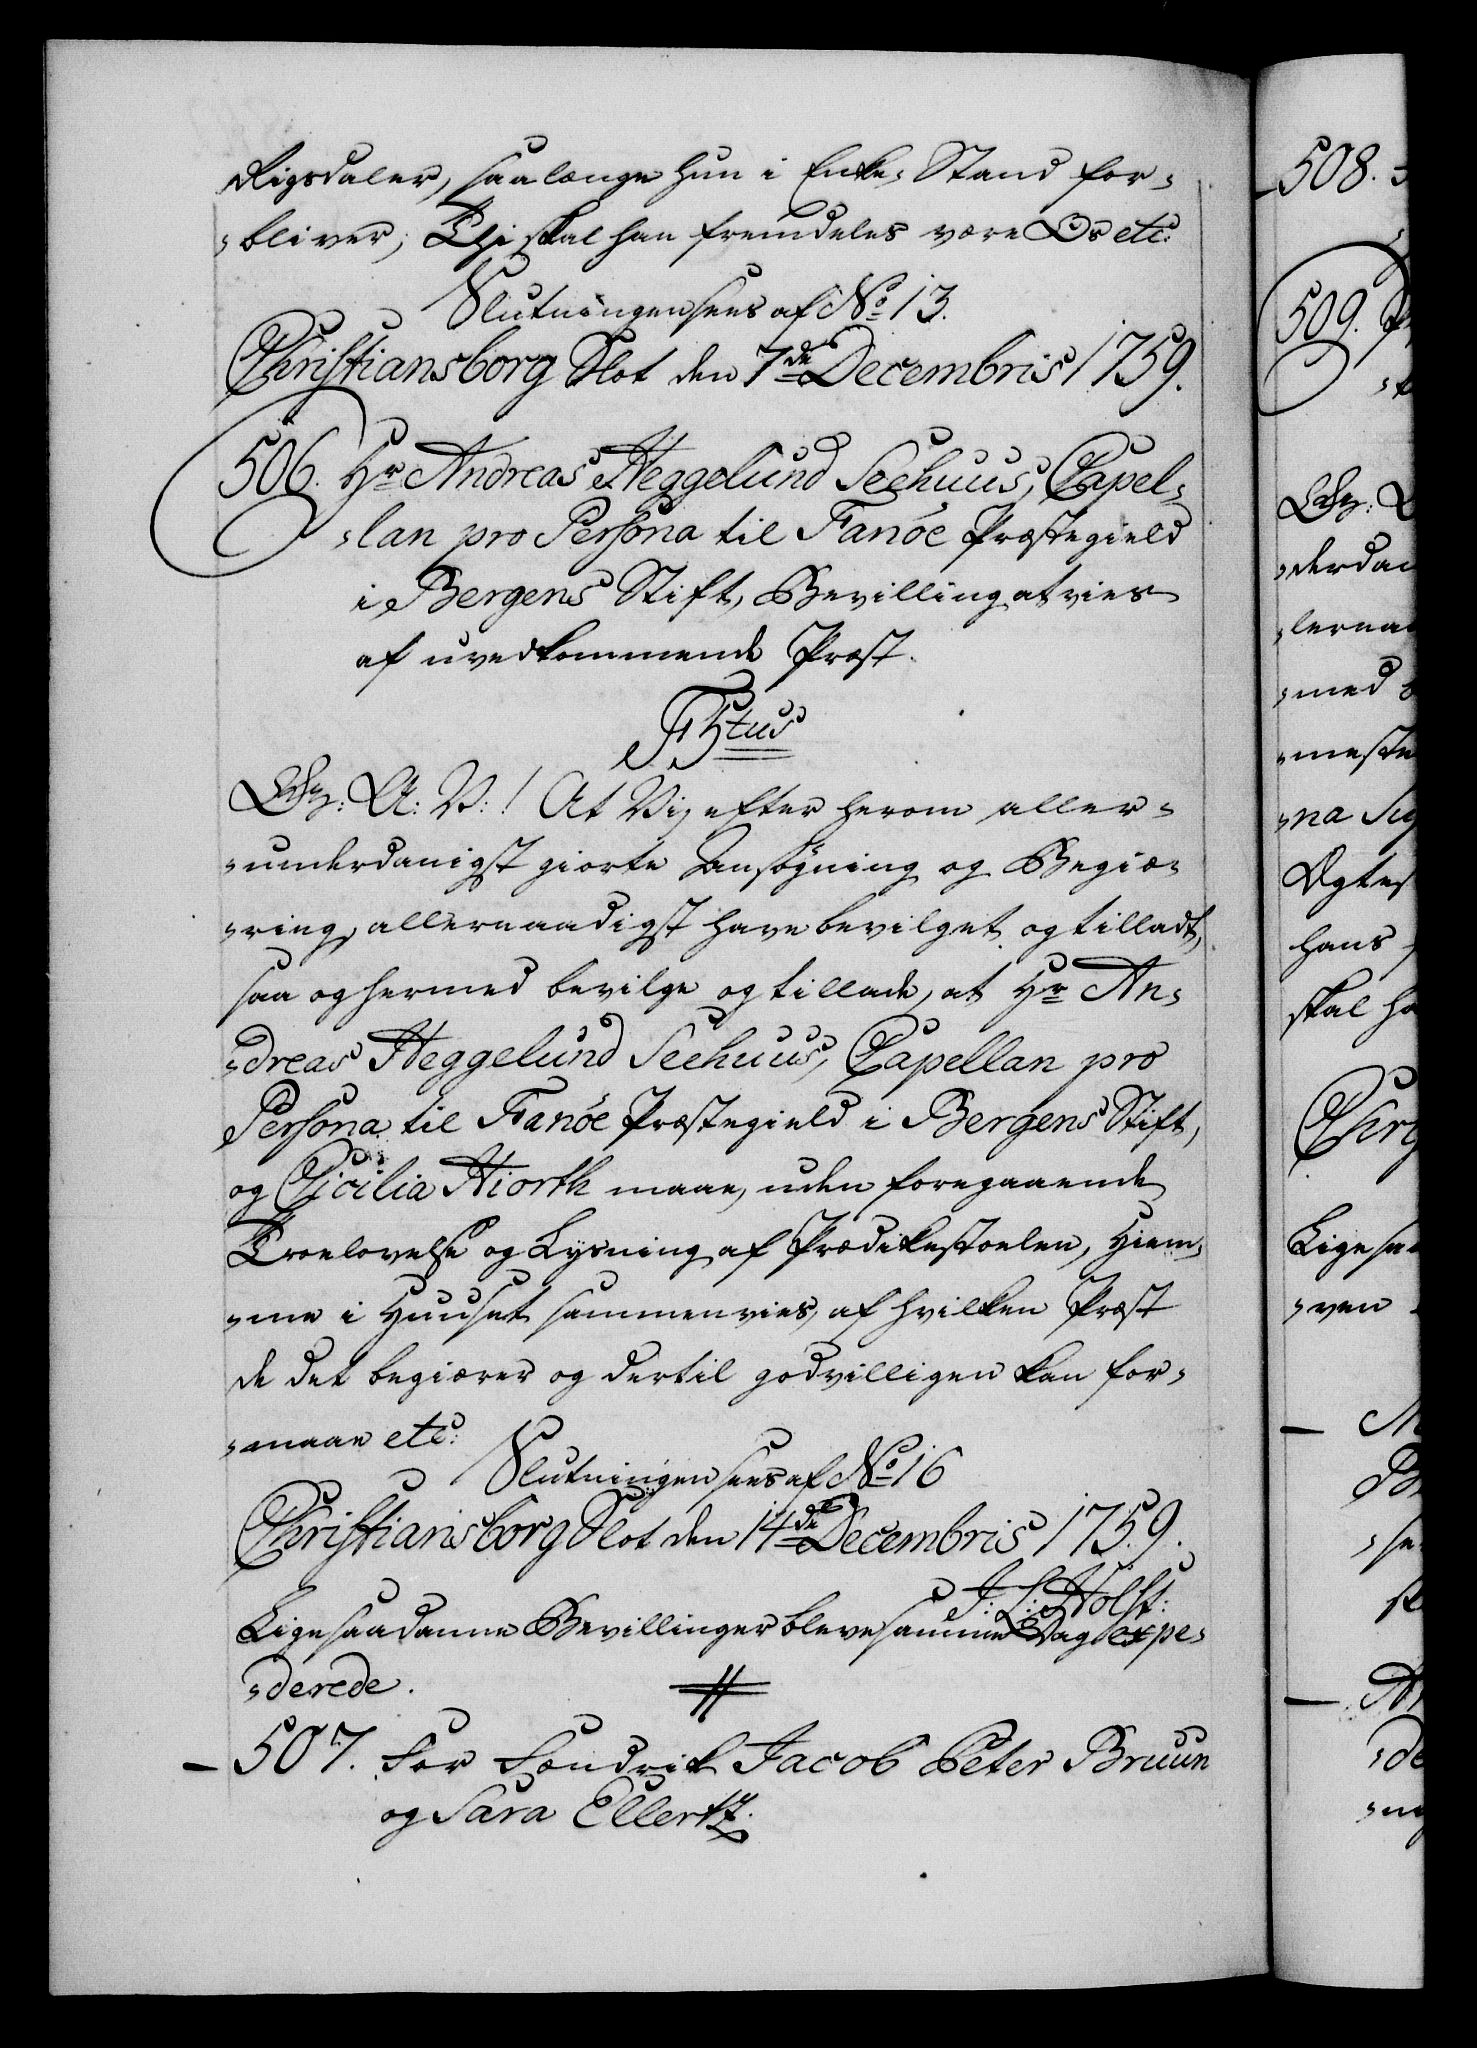 Rigsdaler, saalænge hun i Enke-Stand for-
-bliver; Thi skal han fremdeles være Os etc:
Slutningen sees af No 13.
Christiansborg Slot den 7de Decembris 1759.
506. Hr Andreas Heggelund Seehuus, Capel-
-lan pro Persona til Fanöe Præstegield
i Bergens Stift, Bevilling at vies
af uvedkommende Præst.
F5tus
G: A: V:! At Vi, efter herom aller-
-underdanigst giorte Ansögning og Begiæ-
-ring, allernaadigst have bevilget og tilladt,
saa og hermed bevilge og tillade, at Hr An-
-dreas Heggelund Seehuus, Capellan pro
Persona til Fanöe Præstegield i Bergens Stift,
og Cicilia Hiorth maae, uden foregaaende
Troelovelse og Lysning af Prædikestoelen, Hiem-
-me i Huuset sammenvies, af hvilken Præst
de det begiærer og dertil godvilligen kan for-
-maae etc:
Slutningen sees af No 16
Christiansborg Slot den 14de Decembris 1759.
J: L: Holst:
Ligesaadanne Bevillinger bleve samme Dag expe-
-derede.
- 507. For Fændrik Jacob Peter Bruun
og Sara Ellertz.
508.
509.
-derdan
-lernaa
-med
-meste
-na
Ægtes
hans
skal ha
Chri
Ligesaa
-ven